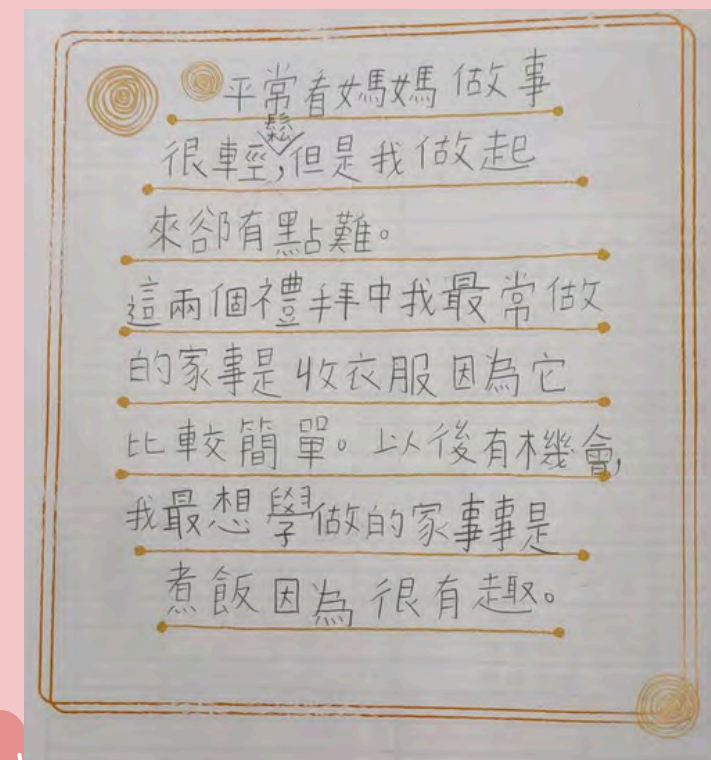 平常看媽媽做事
很輕鬆,但是我做起
來卻有點難。
這兩個禮拜中我最常做
的家事是收衣服因為它
比較簡單。以後有機會,
我最想學做的家事事是
煮飯因為很有趣。